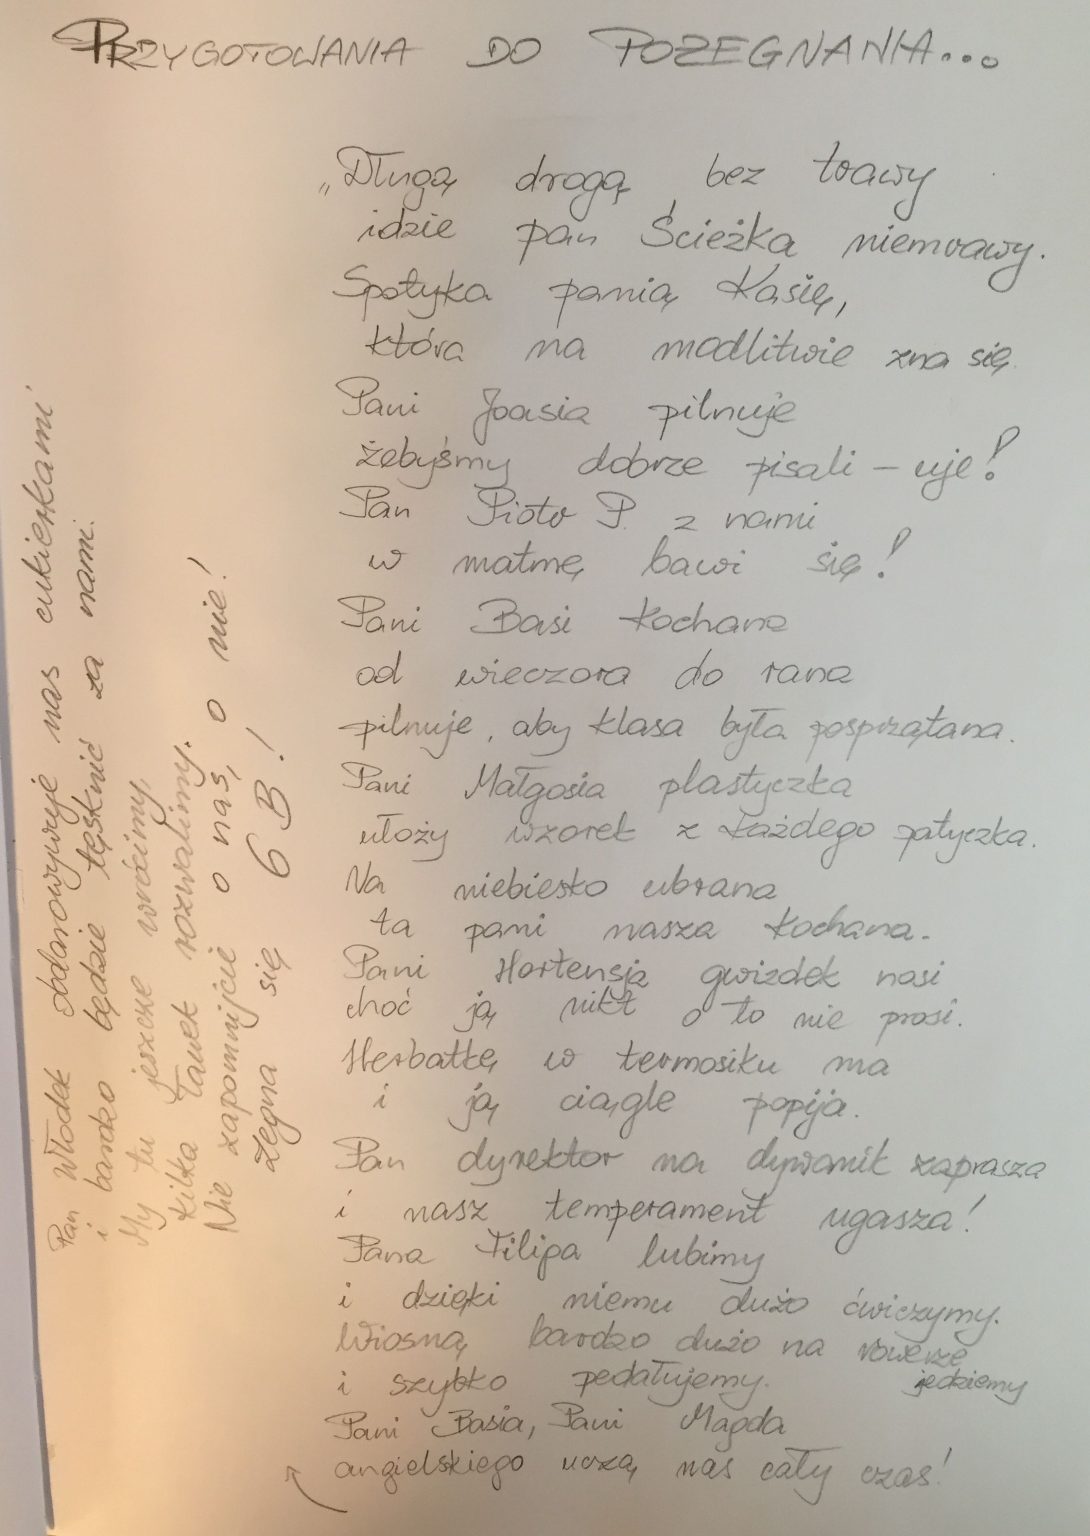 PRZYGOTOWANIA DO POŻEGNANIA...
„Długą drogą bez trawy
idzie pan Ścieżka niemrawy.
Spotyka panią Kasię,
która na modlitwie zna się.
Pani Joasia pilnuje
żebyśmy dobrze pisali – uje!
Pan Piotr P. z nami
w matmę bawi się!
Pani Basi kochana
od wieczora do rana
pilnuje, aby klasa była posprzątana.
Pani Małgosia plastyczka
ułoży wzorek z każdego patyczka.
Na niebiesko ubrana
ta pani nasza kochana.
Pani Hortensja gwizdek nosi
choć ją nikt o to nie prosi.
Herbatkę w termosiku ma
i ją ciągle popija.
Pan dyrektor na dywanik zaprasza
i nasz temperament ugasza!
Pana Filipa lubimy
i dzięki niemu dużo ćwiczymy.
Wiosną bardzo dużo na rowerze jedziemy
i szybko pedałujemy.
Pani Basia, Pani Magda
angielskiego uczą nas cały czas!
Pan Włodek obdarowywuje nas cukierkami
i bardzo będzie tęsknić za nami.
My tu jeszcze wrócimy,
kilka ławek rozwalimy.
Nie zapomnijcie o nas, o nie!
Żegna się 6 B!